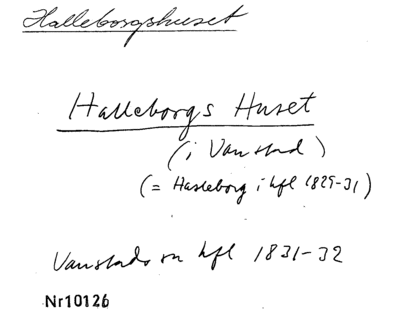 Halleborgshuset
Halleborgs Huset
(i Vanstad)
(= Hasleborg i hfl 1829-31)
Vanstads sn hfl 1831-32
Nr10126